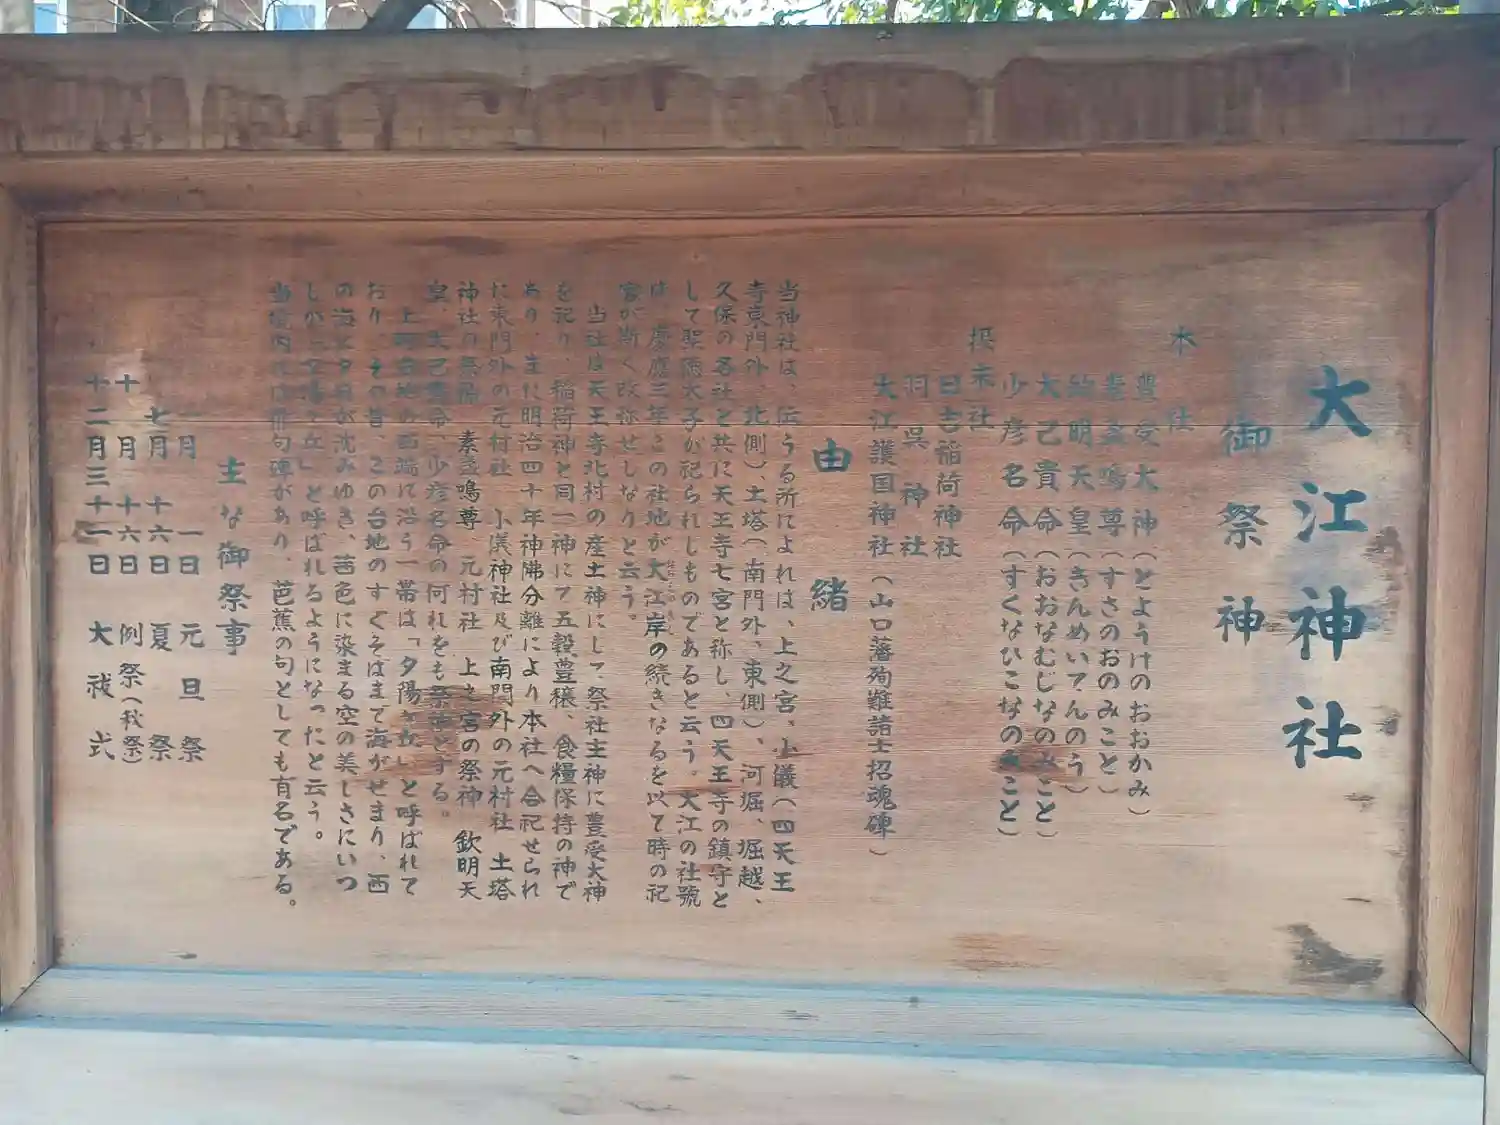 大江神社
御祭神
本社
豊受大神（とようけのおおかみ）
素盞嗚尊（すさのおのみこと）
欽明天皇（きんめいてんのう）
大己貴命（おおなむじなのみこと）
少彦名命（すくなひこなのみこと）
摂末社
日吉稲荷神社
羽呉神社
大江護国神社（山口藩殉難諸士招魂碑）
由緒
当神社は、伝うる所によれば、上之宮、小儀（四天王
寺東門外、北側）、土塔（南門外、東側）、河堀、堀越、
久保の各社と共に天王寺七宮と称し、四天王寺の鎮守と
して聖徳太子が祀られしものであると云う。大江の社號
は、慶應三年この社地が大江岸の続きなるを以て時の祀
官が斯く改称せしなりと云う。
当社は天王寺北村の産土神にして、祭社主神に豊受大神
を祀り、稲荷神と同一神にて五穀豊穣、食糧保持の神で
あり、また明治四十年神佛分離により本社へ合祀せられ
た東門外の元村社 小儀神社及び南門外の元村社 土塔
神社の祭神 素盞嗚尊 元村社 上之宮の祭神 欽明天
皇、大己貴命、少彦名命の何れをも祭神とする。
上町台地の西端に沿う一帯は「夕陽ヶ丘」と呼ばれて
おり、その昔、この台地のすぐそばまで海がせまり、西
の海に夕日が沈みゆき、茜色に染まる空の美しさにいつ
しか「夕陽ヶ丘」と呼ばれるようになったと云う。
当境内には俳句碑があり、芭蕉の句としても有名である。
主な御祭事
一月 一日 元旦祭
七月 十六日 夏祭
十月 十六日 例祭（秋祭）
十二月三十一日 大祓式